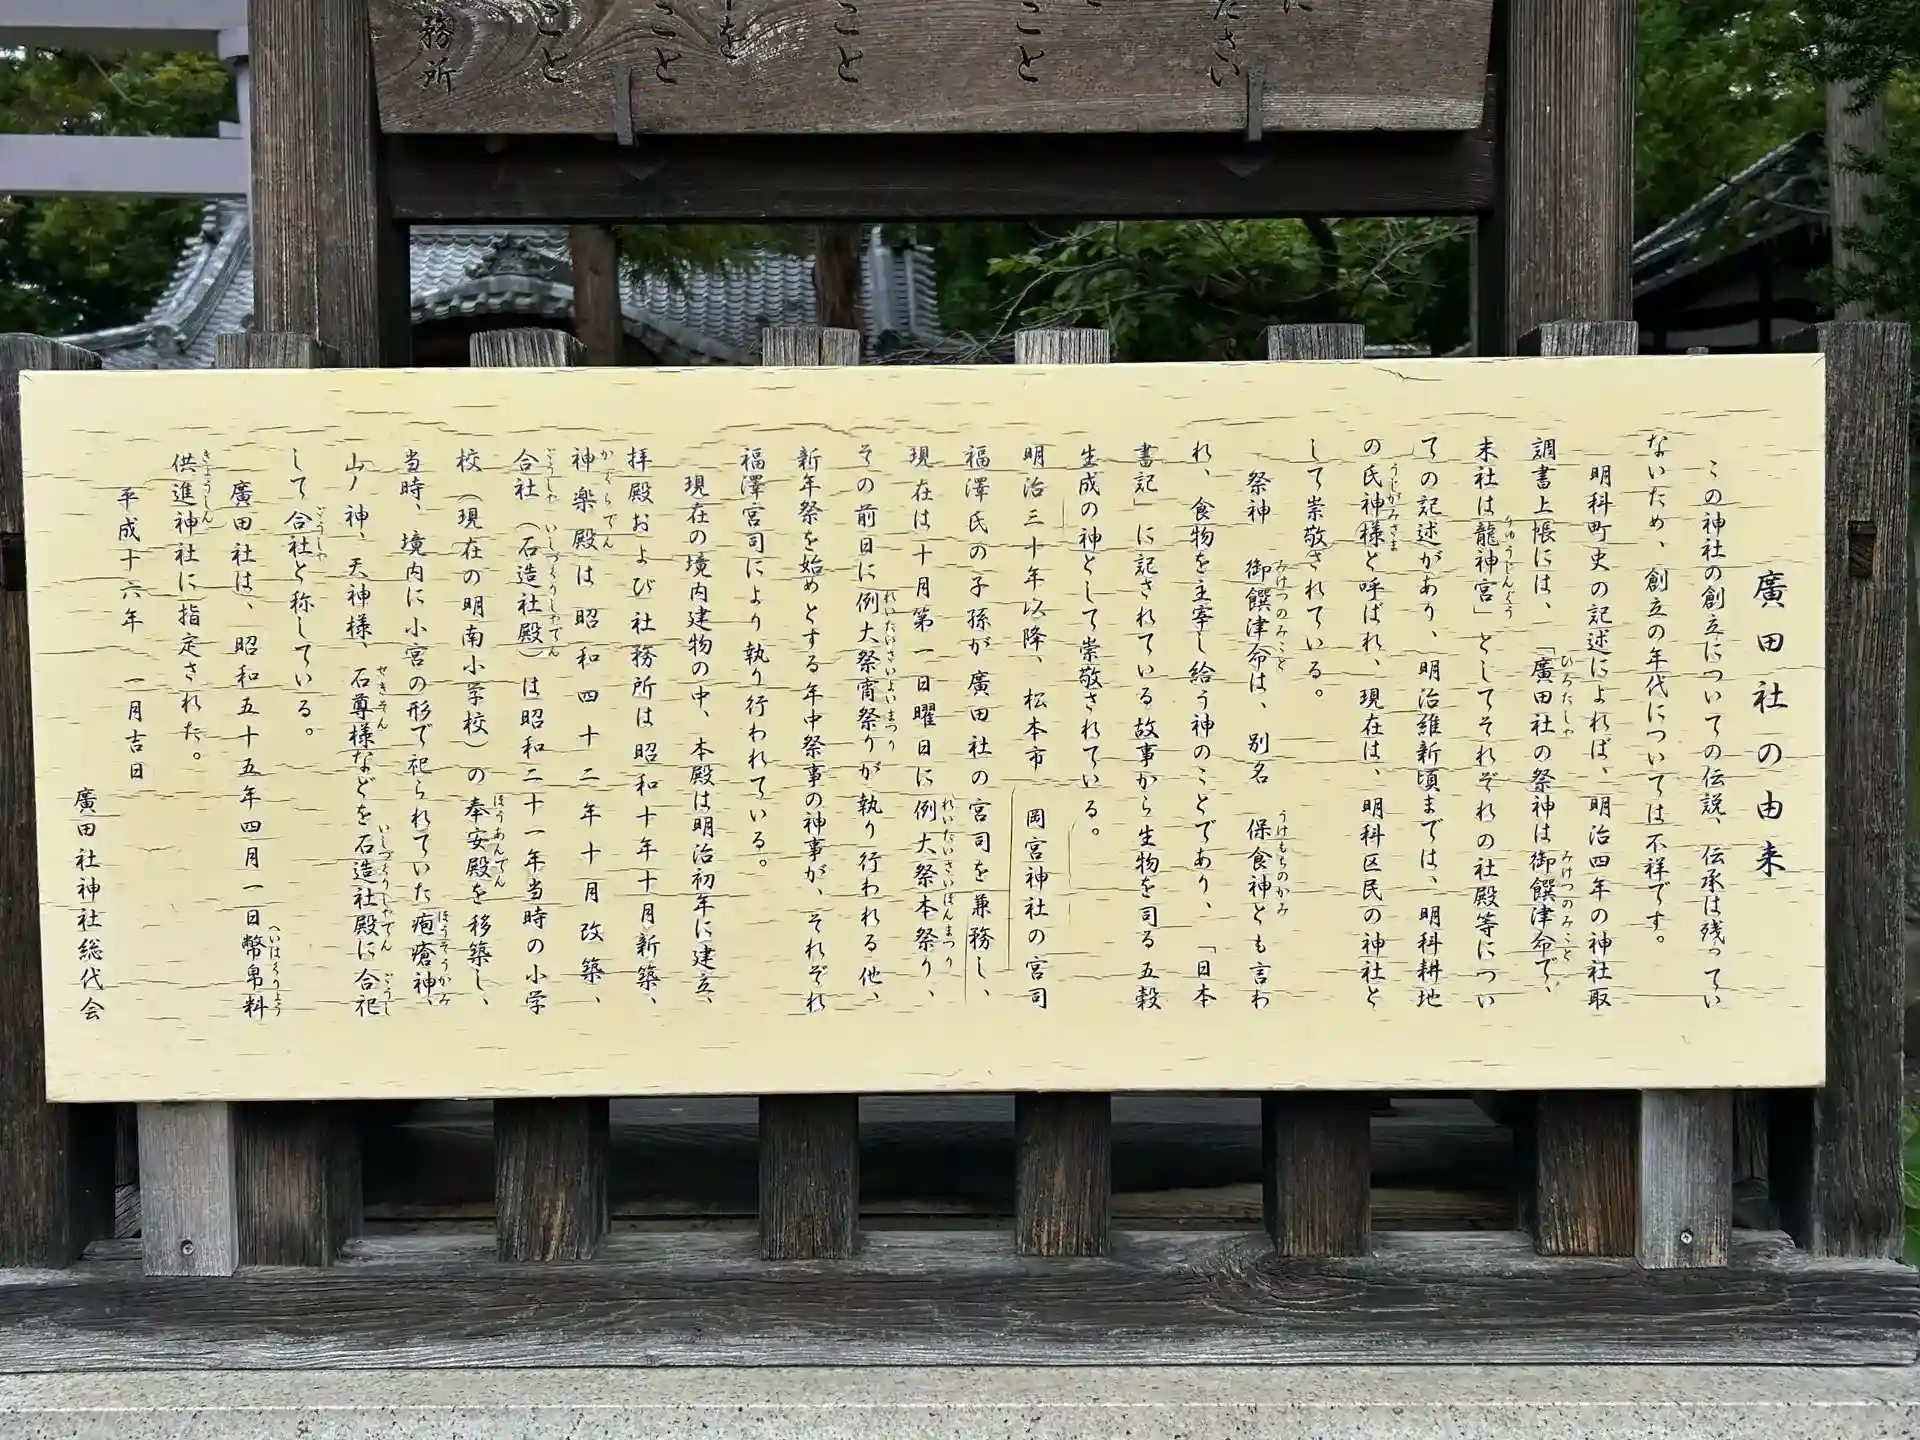 たさい
こと
こと
を
こと
こと
務所
廣田社の由来
この神社の創立についての伝説、伝承は残ってい
ないため、創立の年代については不祥です。
明科町史の記述によれば、明治四年の神社取
調書上帳には、「廣田社の祭神は御饌津命で、
末社は龍神宮」としてそれぞれの社殿等につい
ての記述があり、明治維新頃までは、明科耕地
の氏神様と呼ばれ、現在は、明科区民の神社と
して崇敬されている。
祭神 御饌津命は、別名 保食神とも言わ
れ、食物を主宰し給う神のことであり、「日本
書記」に記されている故事から生物を司る五穀
生成の神として崇敬されている。
明治三十年以降、松本市 岡宮神社の宮司
福澤氏の子孫が廣田社の宮司を兼務し、
現在は十月第一日曜日に例大祭本祭り、
その前日に例大祭宵祭りが執り行われる他、
新年祭を始めとする年中祭事の神事が、それぞれ
福澤宮司により執り行われている。
現在の境内建物の中、本殿は明治初年に建立、
拝殿および社務所は昭和十年十月新築、
神楽殿は昭和四十二年十月改築、
合社（石造社殿）は昭和二十一年当時の小学
校（現在の明南小学校）の奉安殿を移築し、
当時、境内に小宮の形で祀られていた疱瘡神、
山ノ神、天神様、石尊様などを石造社殿に合祀
して合社と称している。
廣田社は、昭和五十五年四月一日幣帛料
供進神社に指定された。
平成十六年 一月吉日
廣田社神社総代会